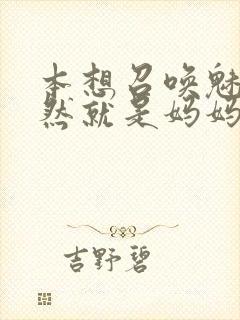 本想召唤魅
然就是妈妈
吉野碧